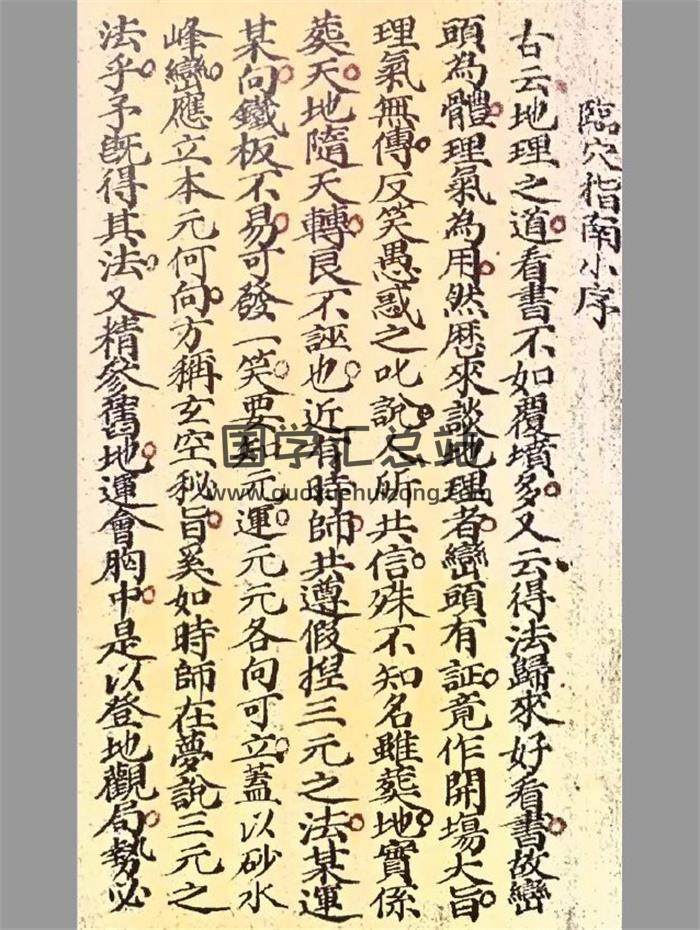 臨穴指南小序
古云地理之道看書不如覆墳多又云得法歸來好看書故巒
頭為體理氣為用然歷來談地理者巒頭有証竟作開場大旨
理氣無傳反笑愚惑之叱說之所共信殊不知名雖葬地實係
葬天地隨天轉良不誣也近有時師共遵假揑三元之法某運
某向鐵板不易可發一笑要知元運元元各向可立蓋以砂水
峰巒應立本元何向方稱玄空秘旨奚如時師在夢說三元之
法乎予既得其法又精參舊地運會胸中是以登地觀局勢必
国学汇总站
www.guoxuehuizong.com